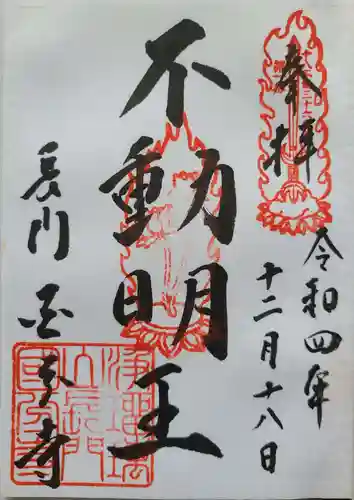 奉拝
令和四年
十二月十八日
不動明王
長門
国分寺